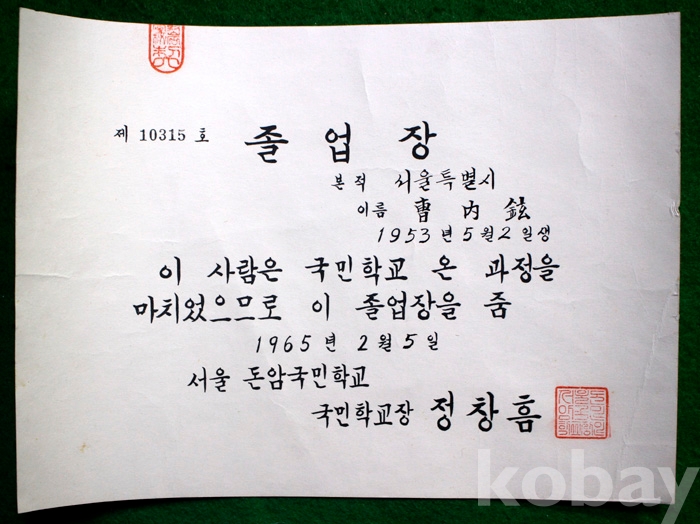 제 10315 호
졸 업 장
본 적 서울특별시
이름 曺 內 鉉
1953 년 5 월 2 일생
이 사람은 국민학교 온 과정을
마치었으므로 이 졸업장을 줌
1965 년 2 월 5 일
서울 돈암국민학교
국민학교장 정 창 흠
kobay